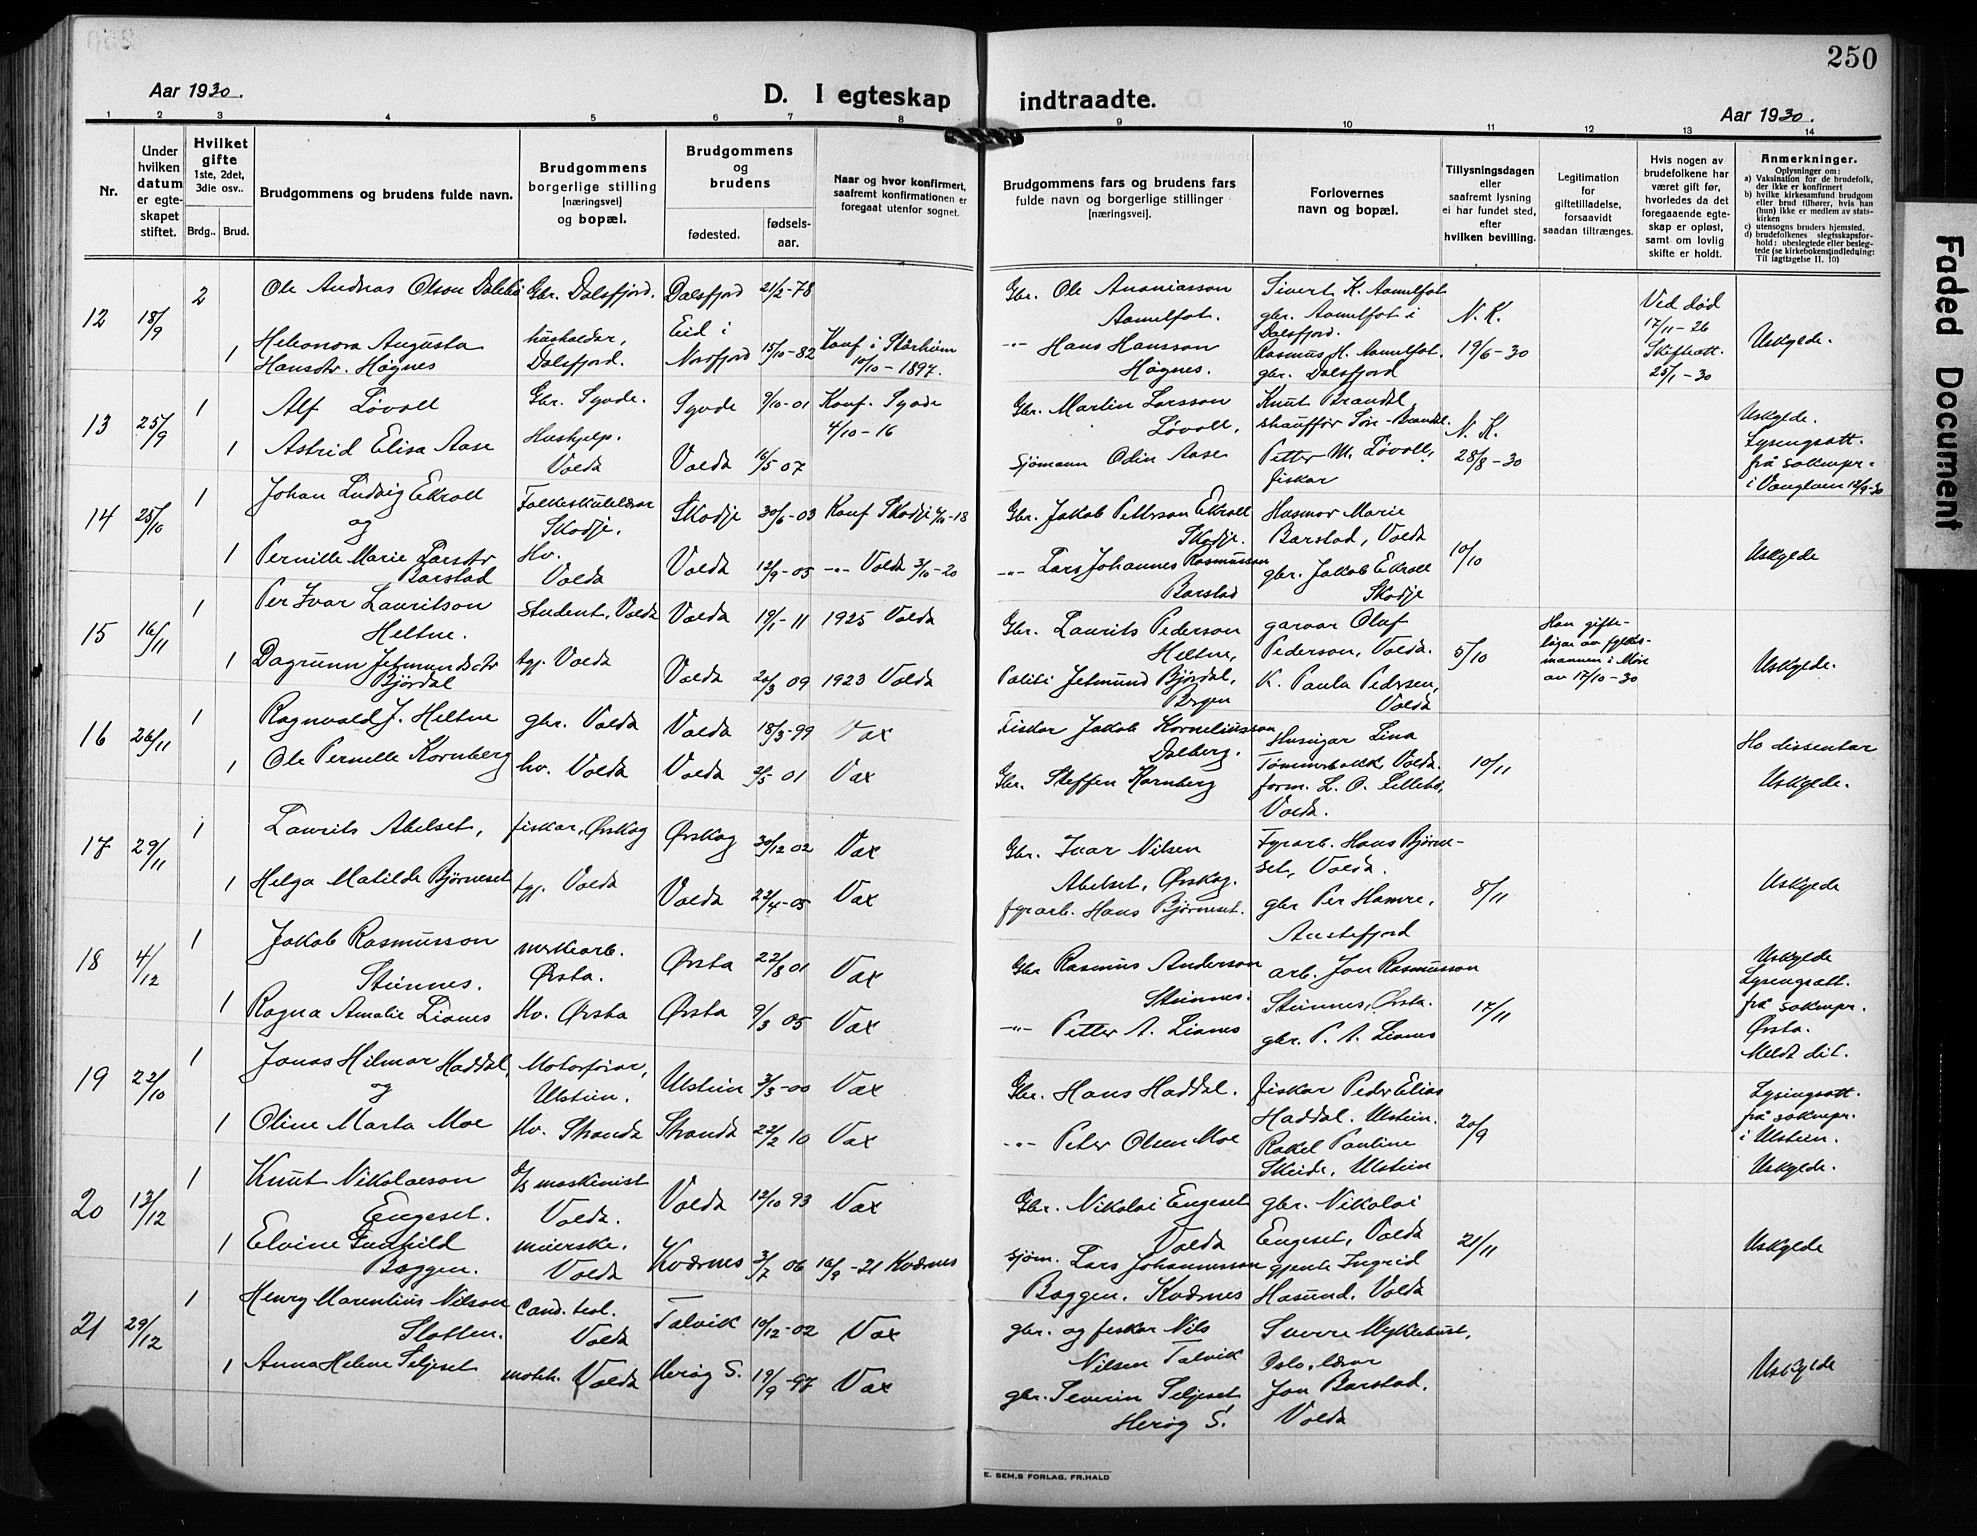 250
Aar 1930.
D. I egteskap indtraadte.
Aar 1930.
1 2 3 4 5 6 7 8 9 10 11 12 13 14
Nr.
Under hvilken datum er egteskapet stiftet.
Hvilket gifte 1ste, 2det, 3die osv..
Brdg.. Brud.
Brudgommens og brudens fulde navn.
Brudgommens borgerlige stilling [næringsvei] og bopæl.
Brudgommens og brudens
fødested.
fødsels-aar.
Naar og hvor konfirmert, saafremt konfirmationen er foregaat utenfor sognet.
Brudgommens fars og brudens fars fulde navn og borgerlige stillinger [næringsvei].
Forlovernes navn og bopæl.
Tillysningsdagen eller saafremt lysning ei har fundet sted, efter hvilken bevilling.
Legitimation for giftetilladelse, forsaavidt saadan tiltrænges.
Hvis nogen av brudefolkene har været gift før, hvorledes da det foregaaende egteskap er opløst, samt om lovlig skifte er holdt.
Anmerkninger.
Oplysninger om:
a) Vaksination for de brudefolk, der ikke er konfirmert
b) hvilke kirkesamfund brudgom eller brud tilhører, hvis han (hun) ikke er medlem av statskirken
c) utensogns bruders hjemsted.
d) brudefolkenes slegtsskapsforhold: ubeslegtede eller beslegtede (se kirkebokens indledning: Til iagttagelse II. 10)
12 18/9 2 Ole Andreas Olson Dalebø Gbr. Dalsfjord. Dalsfjord 21/2-78
Gbr. Ole Ananiasson Aamelfot. Sivert K. Aamelfot gbr. Aamelfot i Dalsfjord. N. K. Ved død 17/11-26 Skifteatt. 25/1-30
1 Heleonora Augusta Hansdtr. Høgnes hushaldar, Dalsfjord. Eid i Norfjord 15/10-82 Konf i Stårheim 10/10-1897.
-"- Hans Hansson Høgnes. Rasmus H. Aamelfot. gbr. Dalsfjord 19/6-30 Uskylde.
13 25/9 1 Alf Løvoll Gbr. Syvde. Syvde 9/10-01 Konf. Syvde 4/10-16
Gbr. Martin Larsson Løvoll, Knut Brandal, shauffør Søre-Brandal. N. K. Uskylde.
1 Astrid Elisa Aase Hushjelp. Volda Volda 16/5 07
Sjømann Odin Aase Petter M. Løvoll, fiskar 28/8-30 Lysingsatt. frå soknepr. i Vanylven 12/9-30
14 25/10 1 Johan Ludvig Ekroll og Folkeskulelærar Skodje. Skodje 30/6-03 Konf Skodje 4/10-18
Gbr. Jakob Petterson Ekroll Skodje. Husmor Marie Barstad, Volda
1 Pernille Marie Larsdtr Barstad Hv. Volda Volda 12/9-05 -"- Volda 3/10-20
-"- Lars Johannes Rasmusson Barstad gbr. Jakob Ekroll Skodje 10/10 Uskylde
15 16/11 1 Per Ivar Lauritson Heltne. Student, Volda Volda 19/1-11 1925 Volda
Gbr. Laurits Pederson Heltne, garvar Olaf Pederson, Volda. 5/10 Han gifteløyve av fylkesmannen i Møre av 17/10-30
1 Dagrunn Jetmundsdtr Bjørdal tgj. Volda Volda 20/3 09 1923 Volda
Politi Jetmund Bjørdal, Bergen K. Paula Pedersen, Volda Uskylde.
16 26/11 1 Ragnvald J. Heltne gbr. Volda Volda 18/3-99 Vax
Fiskar Jakob Korneliusson Dalberg. Husvyar Lina Tømmerbakk, Volda. Ho dissentar
1 Ole Pernille Kornberg hv. Volda Volda 2/5-01 Vax
Gbr. Steffen Kornberg form. L. O. Lillebø, Volda. 10/11 Uskylde.
17 29/11 1 Laurits Abelset, fiskar, Ørskog Ørskog 30/12 02 Vax
Gbr. Ivar Nilsen Abelset, Ørskog. Fyrarb. Hans Bjørneset, Volda.
1 Helga Matilde Bjørneset tgj. Volda Volda 22/4-05 Vax
fyrarb. Hans Bjørneset. gbr Per Hamre, Austefjord 8/11 Uskylde
18 4/12 1 Jakob Rasmusson Steinnes. verkearb. Ørsta. Ørsta 22/8 01 Vax
Gbr Rasmus Anderson Steinnes. arb. Jon Rasmusson Steinnes, Ørsta. Uskylde
1 Ragna Amalie Lianes Hv. Ørsta Ørsta 9/3 05 Vax
-"- Petter A. Lianes gbr. P. A. Lianes 17/11 Lysingsatt. frå soknepr. Ørsta. Meldt dit.
19 22/10 1 Jonas Hilmar Haddal, og Motorførar, Ulstein. Ulstein 3/3-00 Vax
Gbr. Hans Haddal. fiskar Peder Elias Haddal. Ulstein. Lysingsatt. frå soknepr. i Ulstein.
1 Oline Marta Moe Hv. Stranda Stranda 22/2 10 Vax
-"- Peter Olsen Moe Rakel Pauline Skeide, Ulstein 20/9 Uskylde.
20 13/12 1 Knut Nikolaeson Engeset. d/s maskinist Volda. Volda 12/10 93 Vax
Gbr. Nikolai Engeset Volda gbr. Nikolai Engeset, Volda
1 Elvine Gunhild Baggen. meierske. Volda Kvernes 3/7 06 16/9-21 Kvernes
Sjøm. Lars Johannesson Baggen. Kvernes gjente Ingrid Hasund. Volda 21/11 Uskylde
21 29/12 1 Henry Marentius Nilson Slotten. Cand. teol. Volda Talvik 10/12-02 Vax
gbr. og fiskar Nils Nilsen Talvik Sverre Myklebust, Oslo, lærar
1 Anna Helene Seljeset Volda Herøy S. 19/9-97 Vax
gbr. Severin Seljeset Herøy S. Jon Barstad. Volda Uskylde
E. SEM.S FORLAG, FR.HALD
Faded Document